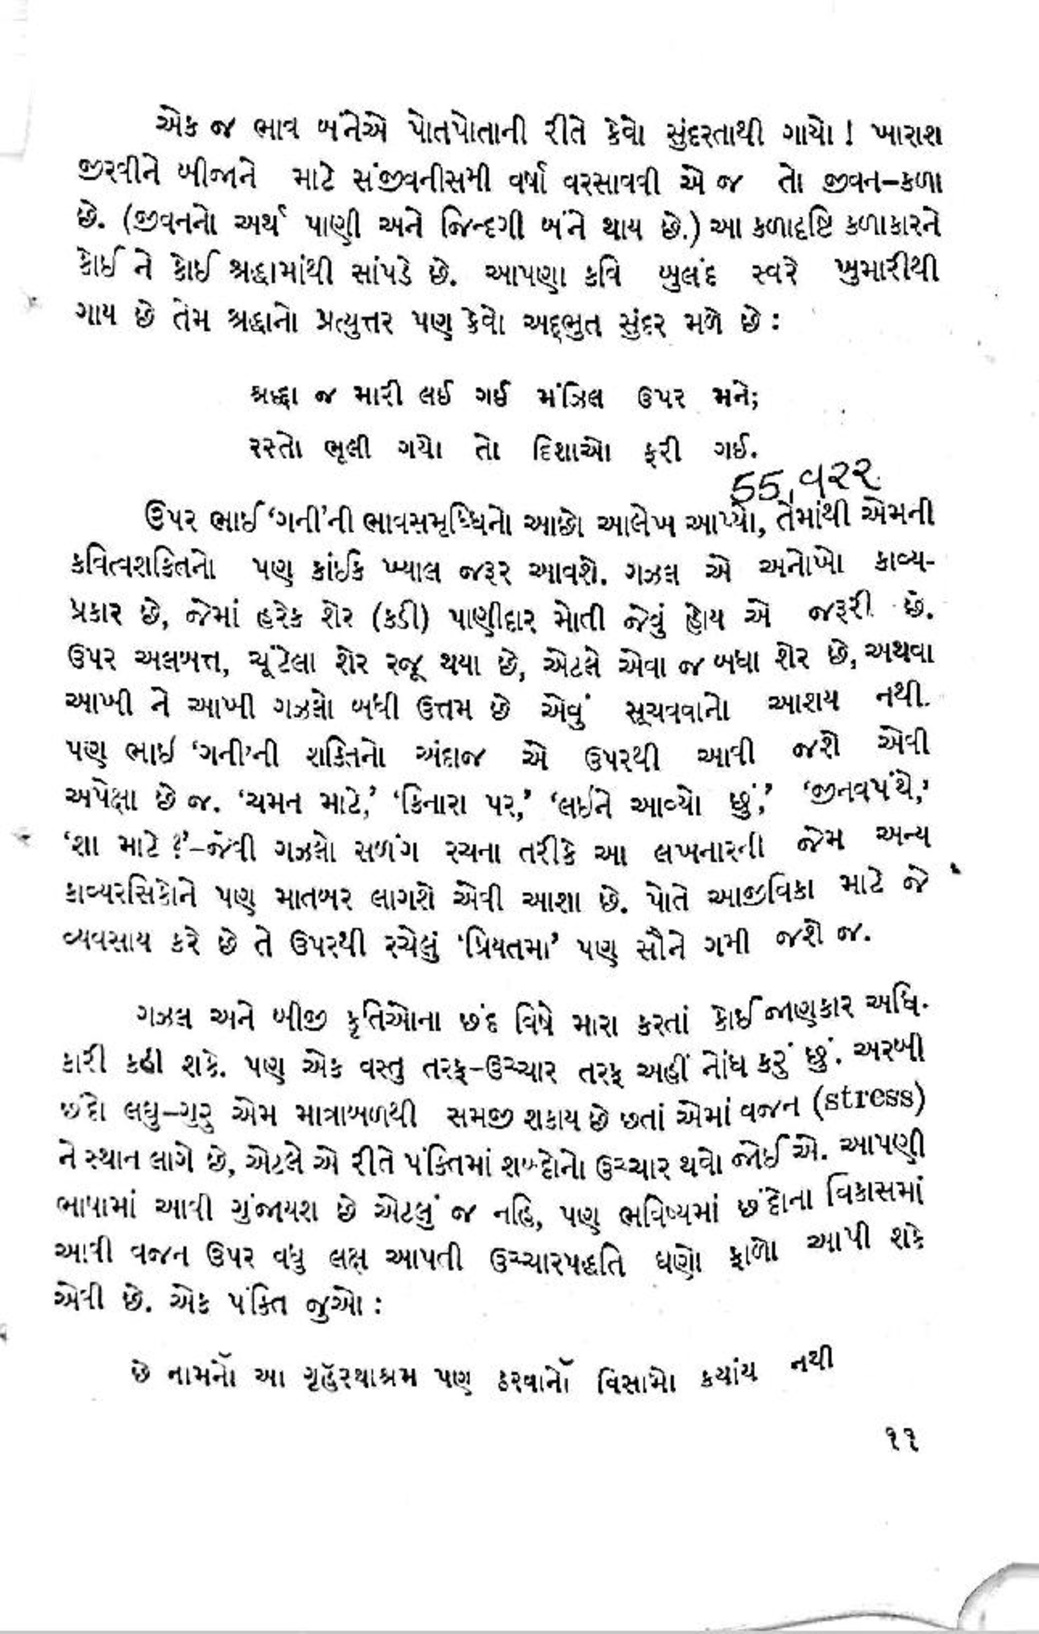 એક જ ભાવ બંનેએ પોતપોતાની રીતે કેવો સુંદરતાથી ગાયો ! ખારાશ
જીરવીને બીજાને માટે સંજીવનીસમી વર્ષા વરસાવવી એ જ તો જીવન–કળા
છે. (જીવનનો અર્થ પાણી અને જિન્દગી બંને થાય છે.) આ કળાદૃષ્ટિ કળાકારને
કોઈ ને કોઈ શ્રદ્ધામાંથી સાંપડે છે. આપણા કવિ બુલંદ સ્વરે ખુમારીથી
ગાય છે તેમ શ્રદ્ધાનો પ્રત્યુત્તર પણ કેવો અદ્ભુત સુંદર મળે છે :
શ્રદ્ધા જ મારી લઈ ગઈ મંઝિલ ઉપર મને;
રસ્તો ભૂલી ગયો તો દિશાઓ ફરી ગઈ.
55,૧૨૨
ઉપર ભાઈ ‘ગની’ની ભાવસમૃધ્ધિનો આછો આલેખ આપ્યો, તેમાંથી એમની
કવિત્વશક્તિનો પણ કાંઈક ખ્યાલ જરૂર આવશે. ગઝલ એ અનોખો કાવ્ય-
પ્રકાર છે, જેમાં હરેક શેર (કડી) પાણીદાર મોતી જેવું હોય એ જરૂરી છે.
ઉપર અલબત્ત, ચૂંટેલા શેર રજૂ થયા છે, એટલે એવા જ બધા શેર છે, અથવા
આખી ને આખી ગઝલો બધી ઉત્તમ છે એવું સૂચવવાનો આશય નથી.
પણ ભાઇ ‘ગની’ની શક્તિનો અંદાજ એ ઉપરથી આવી જશે એવી
અપેક્ષા છે જ. ‘ચમન માટે,’ ‘કિનારા પર,’ ‘લઇને આવ્યો છું,’ ‘જીનવપંથે,’
‘શા માટે ?’–જેવી ગઝલો સળંગ રચના તરીકે આ લખનારની જેમ અન્ય
કાવ્યરસિકોને પણ માતબર લાગશે એવી આશા છે. પોતે આજીવિકા માટે જે
વ્યવસાય કરે છે તે ઉપરથી રચેલું ‘પ્રિયતમા’ પણ સૌને ગમી જશે જ.
ગઝલ અને બીજી કૃતિઓના છંદ વિષે મારા કરતાં કોઈ જાણકાર અધિ-
કારી કહી શકે. પણ એક વસ્તુ તરફ–ઉચ્ચાર તરફ અહીં નોંધ કરું છું. અરબી
છંદો લઘુ–ગુરુ એમ માત્રાબળથી સમજી શકાય છે છતાં એમાં વજન (stress)
ને સ્થાન લાગે છે, એટલે એ રીતે પંક્તિમાં શબ્દોનો ઉચ્ચાર થવો જોઈ એ. આપણી
ભાષામાં આવી ગુંજાયશ છે એટલું જ નહિ, પણ ભવિષ્યમાં છંદોના વિકાસમાં
આવી વજન ઉપર વધુ લક્ષ આપતી ઉચ્ચારપદ્ધતિ ઘણો ફાળો આપી શકે
એવી છે. એક પંક્તિ જુઓ :
છે નામનૉ આ ગૃહૅસ્થાશ્રમ પણ ઠરવાનૉ વિસામો કયાંય નથી
૧૩